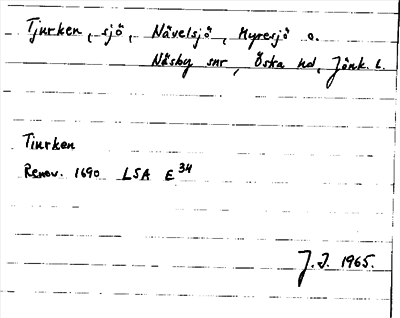 Tjurken, sjö, Nävelsjö, Myresjö o.
Näsby snr, Östra hd, Jönk. l.
Tiurken
Renov. 1690 LSA E 34
J.I. 1965.